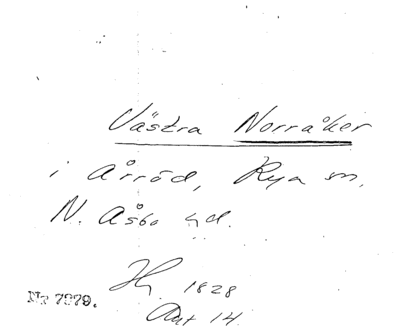 Västra Norråker
i Årröd, Rya sn,
N. Åsbo hd.
Hj. 1828
Akt 14.
Nr 7979.